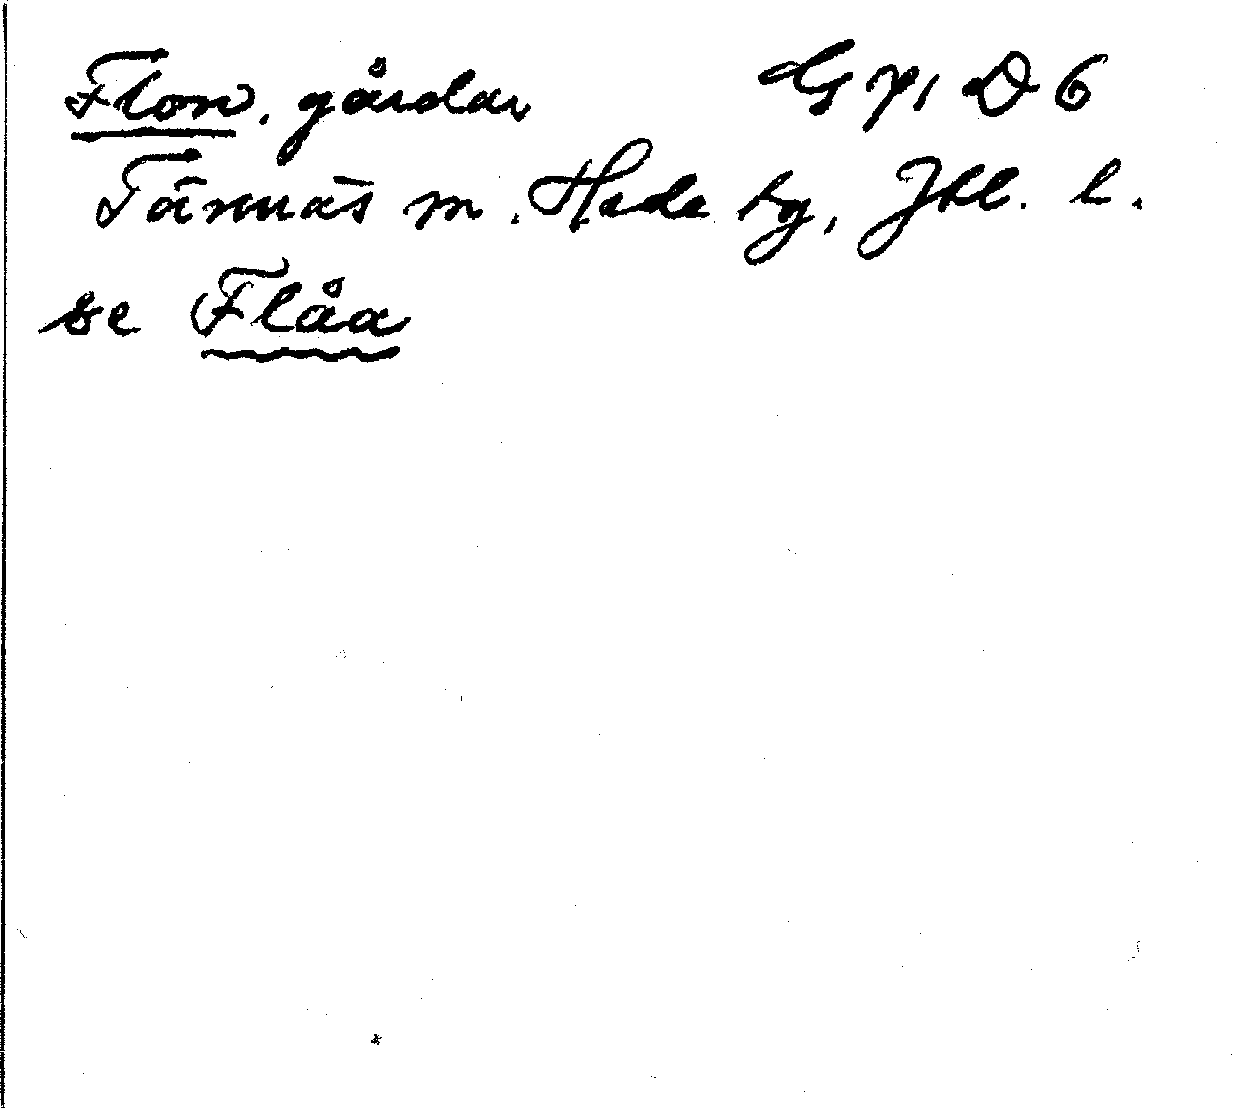 Flon, gårdar G. γ, D 6
Tännäs sn. Hede tg, Jtl. l.
se Flåa